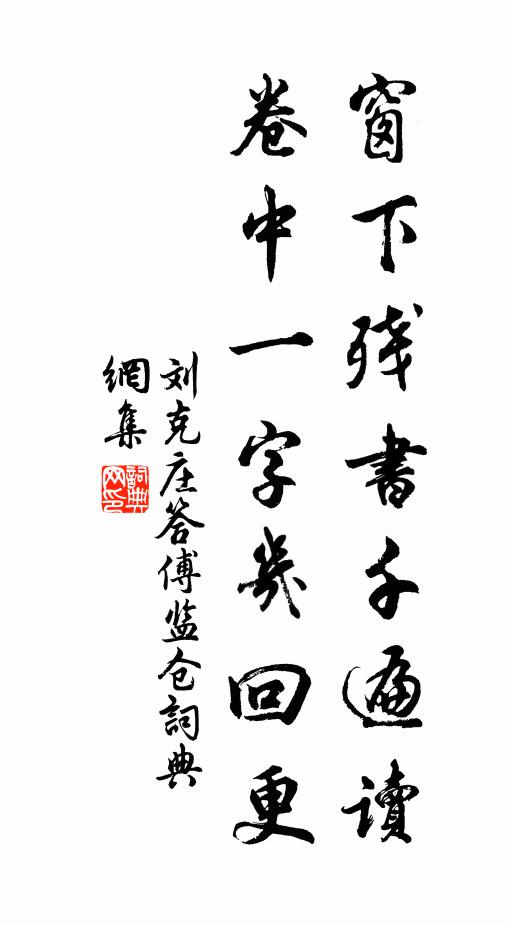 窗下残書千遍讀
卷中一字幾回更
刘克庄答傅监仓詞典
網集
詞典
网印